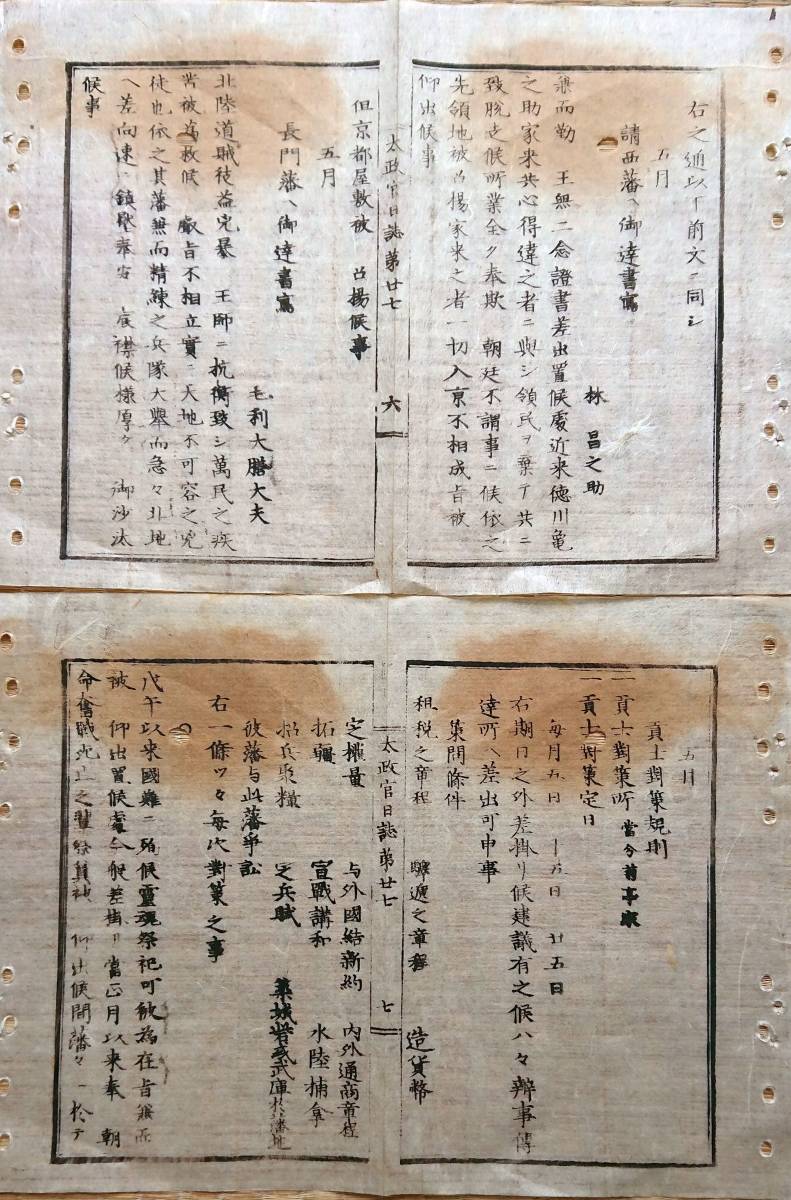 右之通以下前文ニ同シ
五月
請西藩ヘ御達書寫
林昌之助
兼而勤 王無二念證書差出置候處近来徳川亀
之助家来共心得違之者ニ與シ領民ヲ棄テ共ニ
致脱走候所業全ク奉欺 朝廷不謂事ニ候依之
先領地被召揚家来之者一切入京不相成旨被
仰出候事
太政官日誌第廿七
六
但京都屋敷被 召揚候事
五月
長門藩ヘ御達書寫
毛利大膳大夫
北陸道賊徒益兇暴 王師ニ抗衡致シ萬民之疾
苦被為救候 叡旨不相立實ニ天地不可容之兇
徒也依之其藩兼而精練之兵隊大擧而急々北地
ヘ差向速ニ鎮壓奉安 宸襟候様厚ク 御沙汰
候事
五月
貢士對策規則
一貢士對策所 當分菊亭家
一貢士對策定日
毎月五日 十五日 廿五日
右期日之外差掛リ候建議有之候ハヽ辨事傳
達所ヘ差出可申事
策問條件
租税之章程 驛逓之章程 造貨幣
太政官日誌第廿七
七
定權量 與外國結新約 内外通商章程
拓疆 宣戰講和 水陸捕拿
招兵聚糧 定兵賦 築城砦武庫於藩地
彼藩与此藩爭訟
右一條ツヽ毎次對策之事
戊午以来國難ニ殉候靈魂祭祀可被為在旨無
被 仰出置候處今般差掛リ當正月以来奉 朝
命奮戰死 之 祭 被 仰出候間藩々ニ於テ